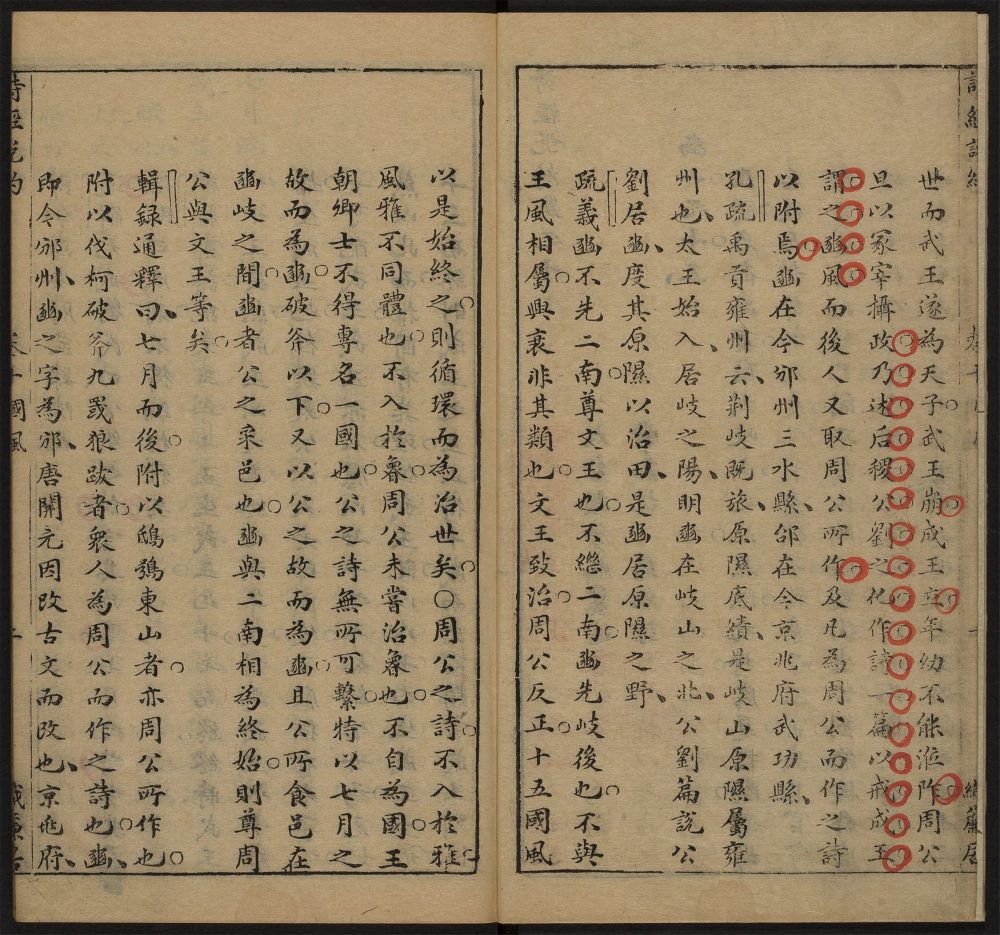 世而武王遂為天子武王崩成王立年幼不能涖阼周公
旦以冢宰攝政乃述后稷公劉之化作詩一篇以戒成王
謂之豳風而後人又取周公所作及凡為周公而作之詩
以附焉豳在今邠州三水縣邰在今京兆府武功縣
孔疏禹貢雍州云荆岐既旅原隰底績是岐山原隰屬雍
州也太王始入居岐之陽明豳在岐山之北公劉篇說公
劉居豳度其原隰以治田是豳居原隰之野
疏義豳不先二南尊文王也不繼二南豳先岐後也不與
王風相屬興衰非其類也文王致治周公反正十五國風
以是始終之則循環而為治世矣○周公之詩不入於雅
風雅不同體也不入於魯周公未嘗治魯也不自為國王
朝卿士不得專名一國也公之詩無所可繫特以七月之
故而為豳破斧以下又以公之故而為豳且公所食邑在
豳岐之間豳者公之采邑也豳與二南相為終始則尊周
公與文王等矣
輯録通釋曰七月而後附以鴟鴞東山者亦周公所作也
附以伐柯破斧九罭狼跋者衆人為周公而作之詩也豳
即令邠州豳之字為邠唐開元因改古文而改也京兆府